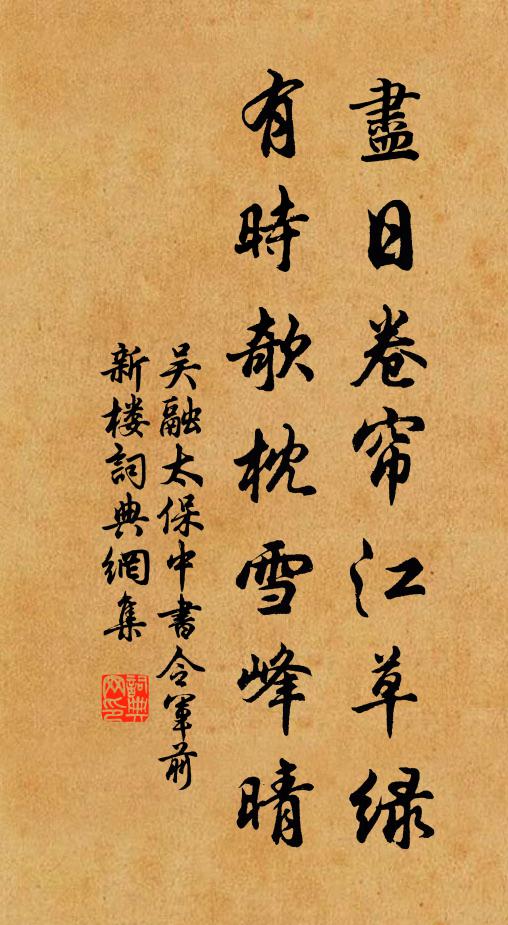 盡日卷帘江草绿
有時欹枕雪峰晴
吴融太保中書令軍前
新楼詞典網集
詞典网印